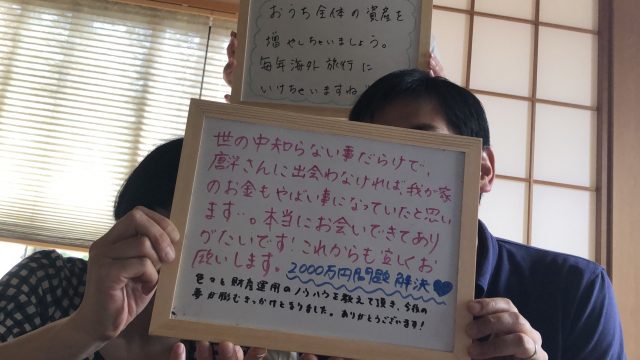 おうち全体の資産を
増やしちゃいましょう。
毎年海外旅行に
いけちゃいますね
世の中知らない事だらけで、
唐澤さんに出会わなければ、我が家
のお金もやばい事になっていたと思い
ます…。本当にお会いできてあり
がたいです!これからも宜しくお
願いします。2000万円問題解決
色々と財産運用のノウハウを教えて頂き、今後の
夢が膨むきっかけとなりました。ありがとうございます!